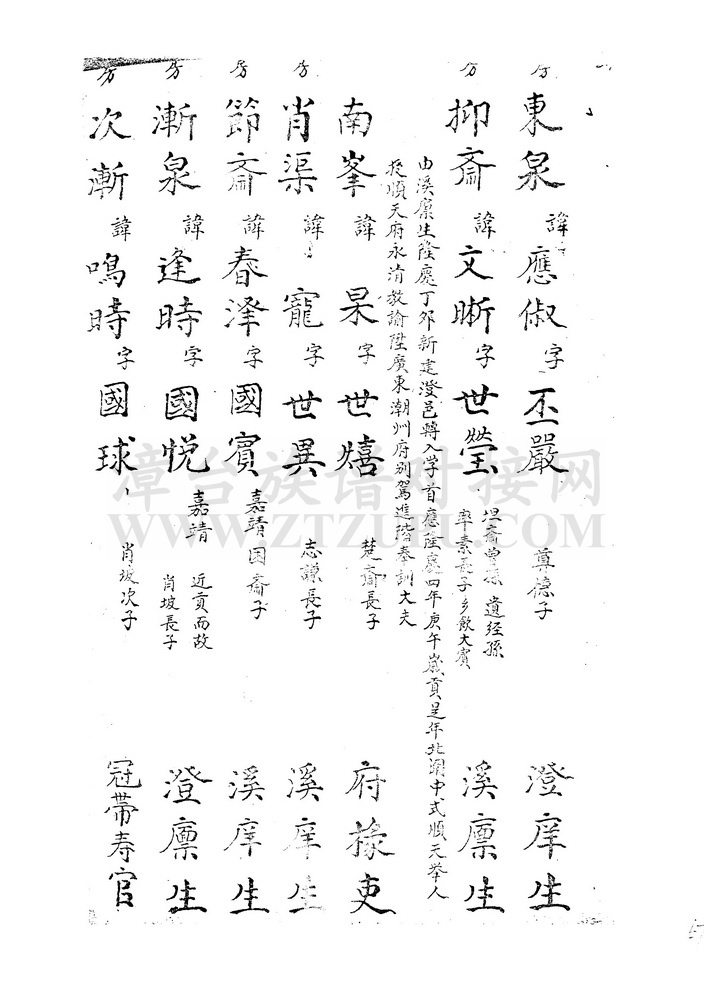 東泉 諱應俶 字丕嚴 尊德子 澄庠生
抑斎 諱文晰 字世瑩 坦斎曾孫 遺经孫
率素長子 乡飲大賓 溪廪生
由溪廪生隆慶丁卯新建澄邑轉入学首應隆慶四年庚午嵗貢是年北闈中式順天举人
授順天府永清教諭陞廣東潮州府别駕進階奉訓大夫
南峯 諱杲 字世嬉 楚斎長子 府掾吏
肖渠 諱寵 字世異 志謙長子 溪庠生
節斎 諱春泽 字國賓 嘉靖 国斎子 溪庠生
漸泉 諱逢時 字國悦 嘉靖 近貢而故
肖坡長子 澄廪生
次漸 諱鳴時 字國球 肖坡次子 冠帯寿官
漳台族谱对接网
WWW.ZTZUPU.COM